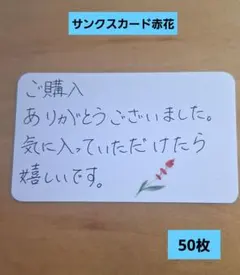 サンクスカード赤花
ご購入
ありがとうございました。
気に入っていただけたら
嬉しいです。
50枚